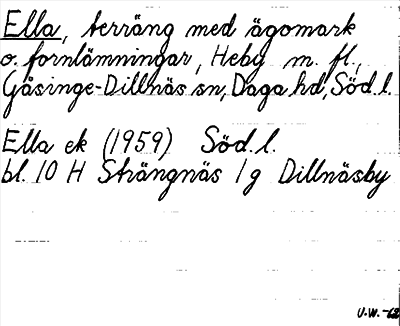 Ella, terräng med ägomark
o. fornlämningar, Heby m. fl.,
Gåsinge-Dillnäs sn, Daga hd, Söd.l.
Ella ek (1959) Söd.l.
bl. 10 H Strängnäs 1 g Dillnäsby
U.W. -62